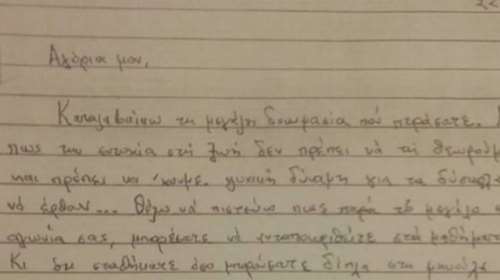 Αγόρια μου,
Καταλαβαίνω τη μεγάλη δοκιμασία που περάσατε.
πως την ευτυχία στη ζωή δεν πρέπει να τη θεωρούμε
και πρέπει να 'χουμε ψυχική δύναμη για τα δύσκολα
να έρθουν... Θέλω να πιστεύω πως παρά το μεγάλο
αγωνία σας, μπορέσατε να ανταποκριθείτε στα μαθήματα
Κι αν σταθήκατε όσο μπορούσατε δίπλα στα